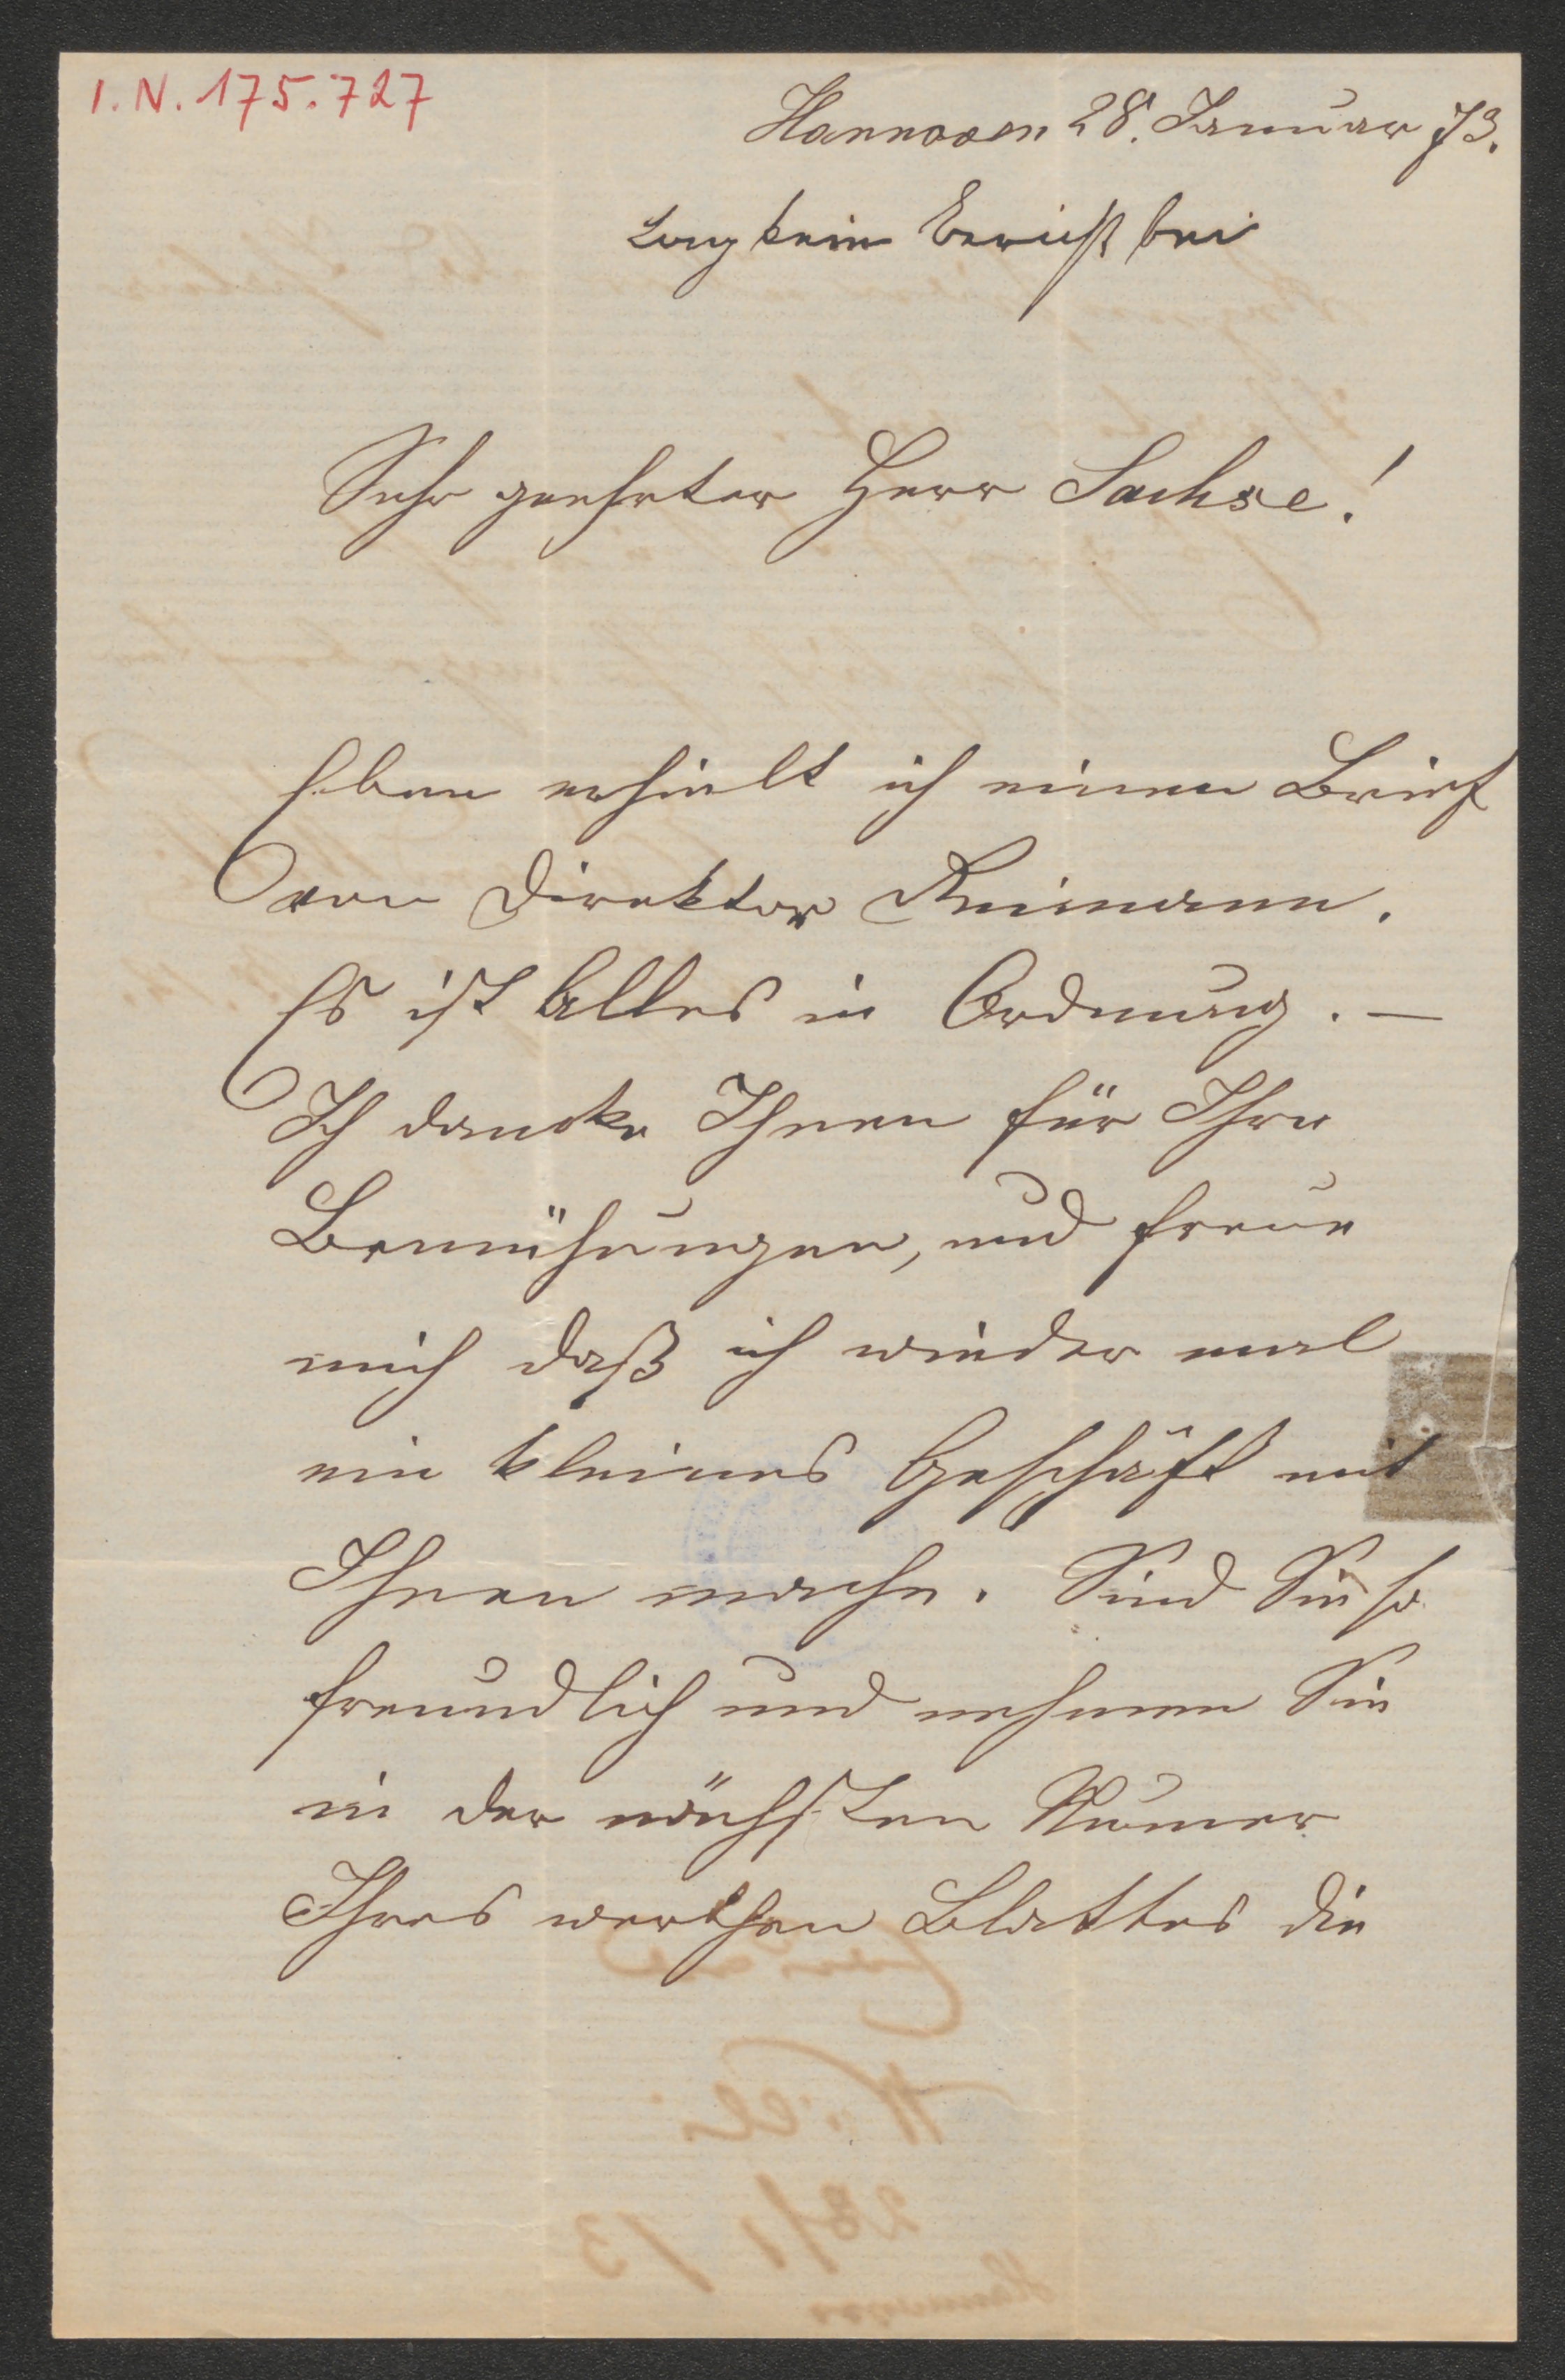 I.N. 175.727
Hannover 28. Januar 73.
Lag kein Bericht bei
Sehr geehrter Herr Sachse!
Eben erhielt ich einen Brief
von Direktor Reimann.
Es ist Alles in Ordnung. —
Ich dancke Ihnen für Ihre
Bemühungen, und freue
mich daß ich wieder mal
ein kleines Geschäft mit
Ihnen mache. Sind Sie so
freundlich und nehmen Sie
in der nächsten Numer
Ihres werthen Blattes die